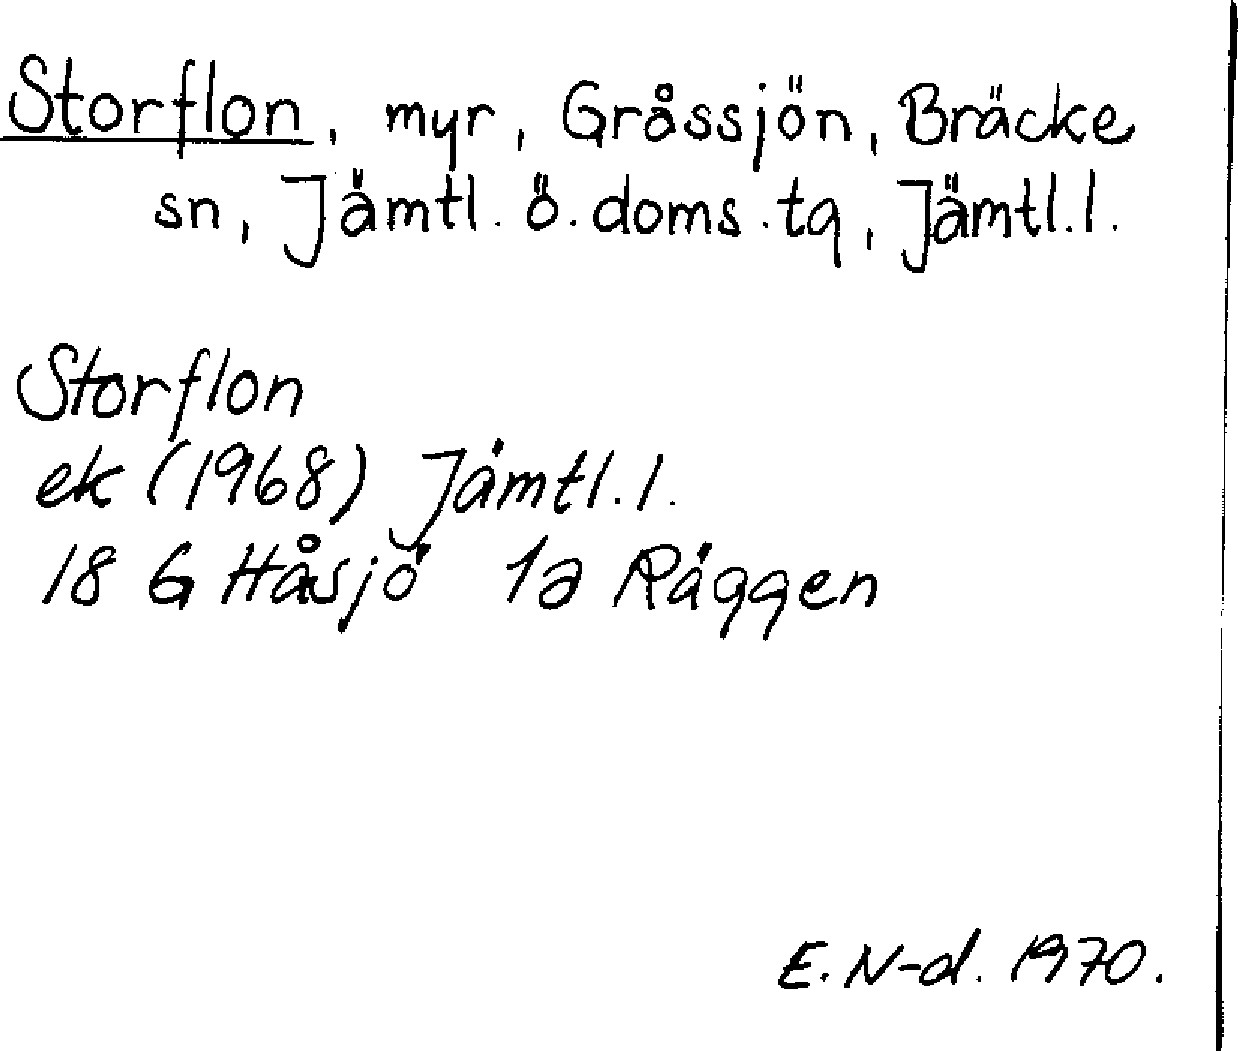 Storflon, myr, Gråssjön, Bräcke
sn, Jämtl. ö. doms. tg, Jämtl. l.
Storflon
ek (1968) Jämtl. l.
18 G Håsjö 1a Räggen
E. N-d. 1970.